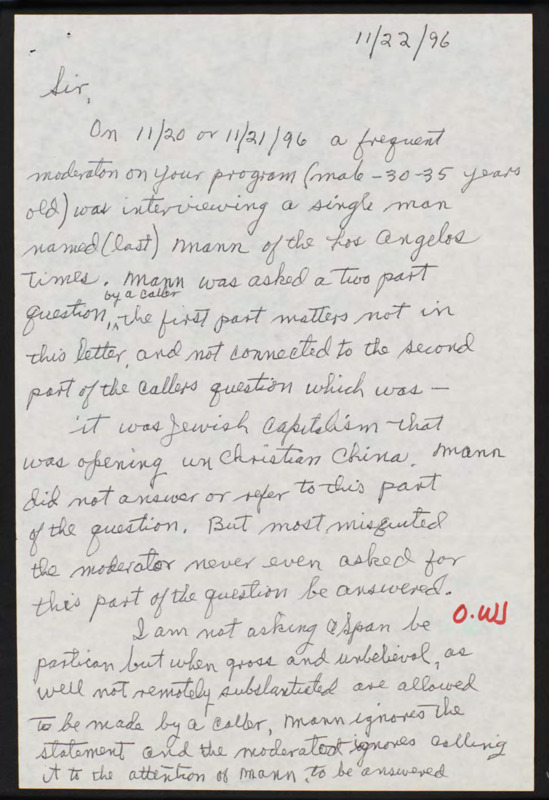 11/22/96
Sir,
On 11/20 or 11/21/96 a frequent
moderator on your program (male - 30-35 years
old) was interviewing a single man
named (last) Mann of the Los Angelos
Times. Mann was asked a two part
by a caller
question, the first part matters not in
this letter, and not connected to the second
part of the callers question which was —
it was Jewish Capitalism that
was opening un Christian China. Mann
did not answer or refer to this part
of the question. But most misguited
the moderator never even asked for
this part of the question be answered.
O.W
I am not asking CSpan be
partican but when gross and unbelieval, as
well not remotely substantisted are allowed
to be made by a caller, Mann ignores the
statement and the moderator ignores calling
it to the attention of Mann, to be answered